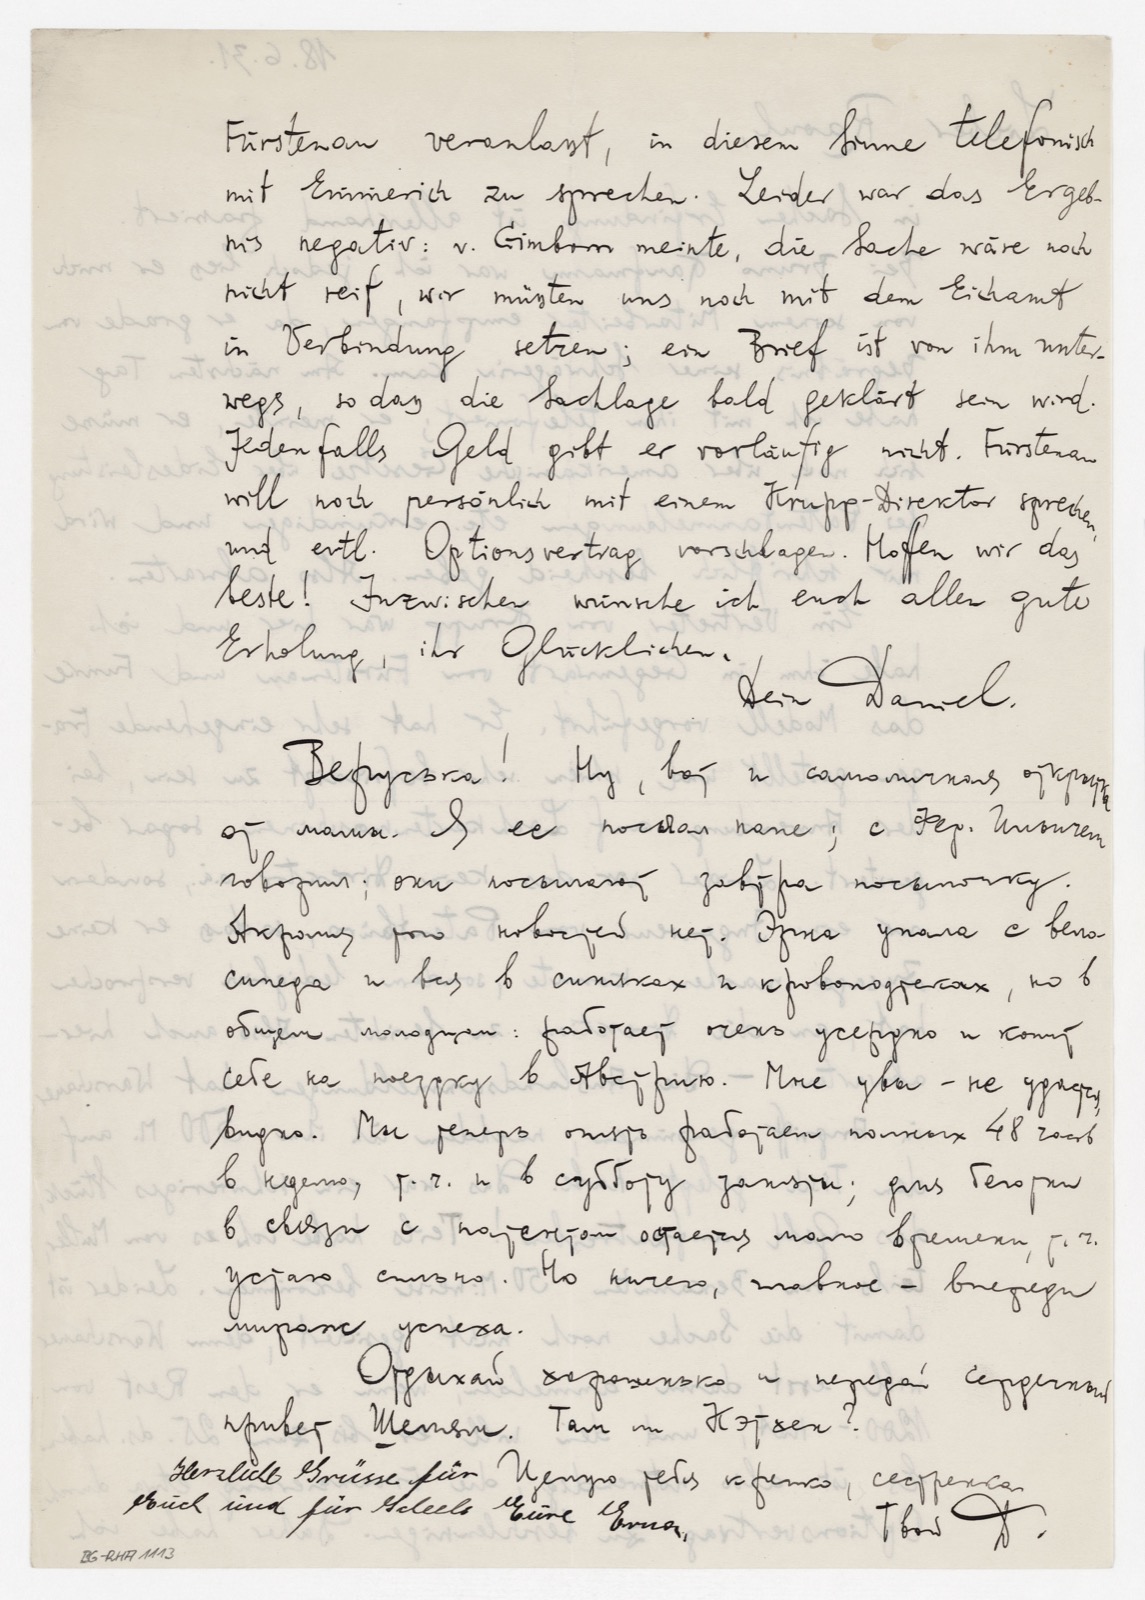 Fürstenau veranlaßt, in diesem Sinne telefonisch
mit Emmerich zu sprechen. Leider war das Ergeb-
nis negativ: v. Gimborn meinte, die Sache wäre noch
nicht reif, wir müßten uns noch mit dem Eichamt
in Verbindung setzen; ein Brief ist von ihm unter-
wegs, so daß die Sachlage bald geklärt sein wird.
Jedenfalls Geld gibt er vorläufig nicht. Fürstenau
will noch persönlich mit einem Krupp-Direktor sprechen,
und evtl. Optionsvertrag vorschlagen. Hoffen wir das
beste! Inzwischen wünsche ich euch allen gute
Erholung, ihr Glücklichen.
Dein Daniel.
Веруська! Ну, вот и самоличная открытка
от мамы. Я ее послал папе; с Фер. Ильичем
говорил; они посылают завтра посылочку.
Акромя того новостей нет. Эрна упала с вело-
сипеда и вся в синяках и кровоподтеках, но в
общем молодцом: работает очень усердно и копит
себе на поездку в Австрию. – Мне увы – не удастся,
видно. Мы теперь опять работаем полных 48 часов
в неделю, т. ч. и в субботу заняты; для беготни
в связи с патентом остается мало времени, т. ч.
устаю сильно. Но ничего, главное – впереди
мираж успеха.
Отдыхай хорошенько и передай сердечный
привет Шелям. Там ли Кэтхен?
Целую тебя крепко, сестренка
Твой Д.
Herzlich Grüsse für
Euch und für Scheels Eure Erna.
18.6.31.
BG-RHA 1113